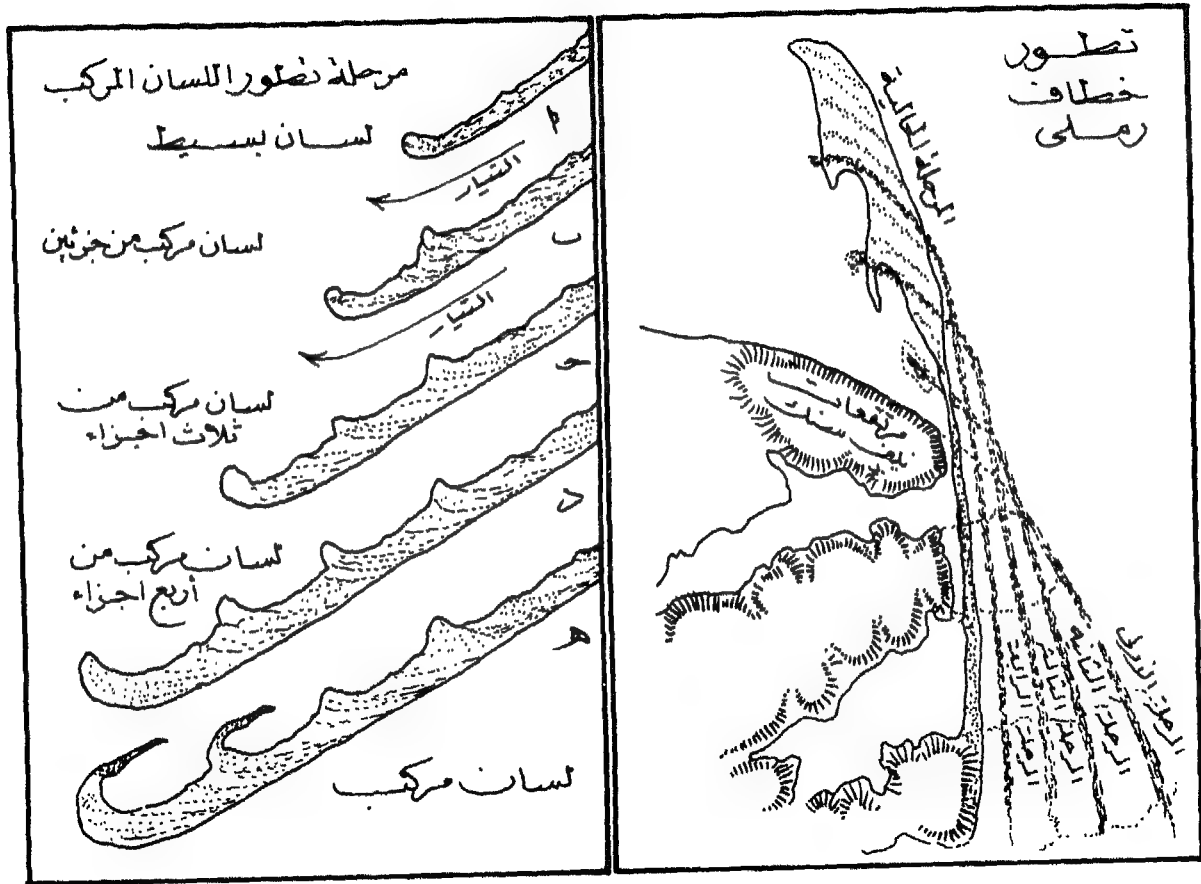 تطور
خطاف
رملى
المرحلة الحالية
مرتفعات
المرحلة الأولى
المرحلة الثانية
المرحلة الثالثة
المرحلة الرابعة
مرحلة تطور اللسان المركب
لسان بسيط
أ
التيار
لسان مركب من جزئين
ب
التيار
لسان مركب من
ثلاث اجزاء
حـ
لسان مركب من
أربع اجزاء
د
لسان مركب
هـ